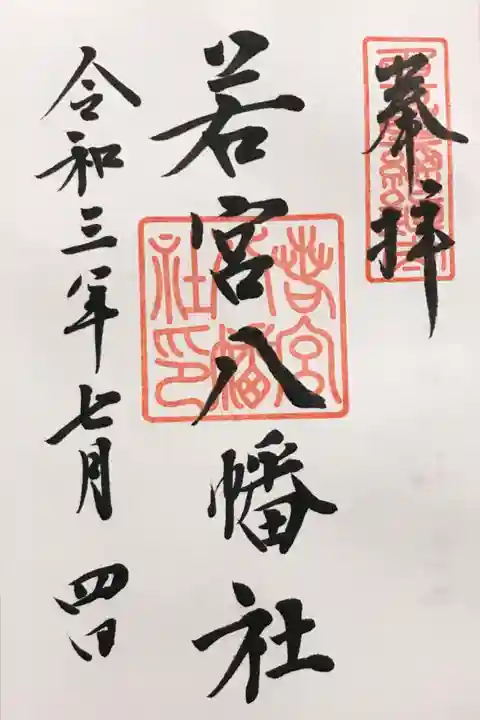 奉拝
若宮八幡社
若宮八幡社印
令和三年七月四日